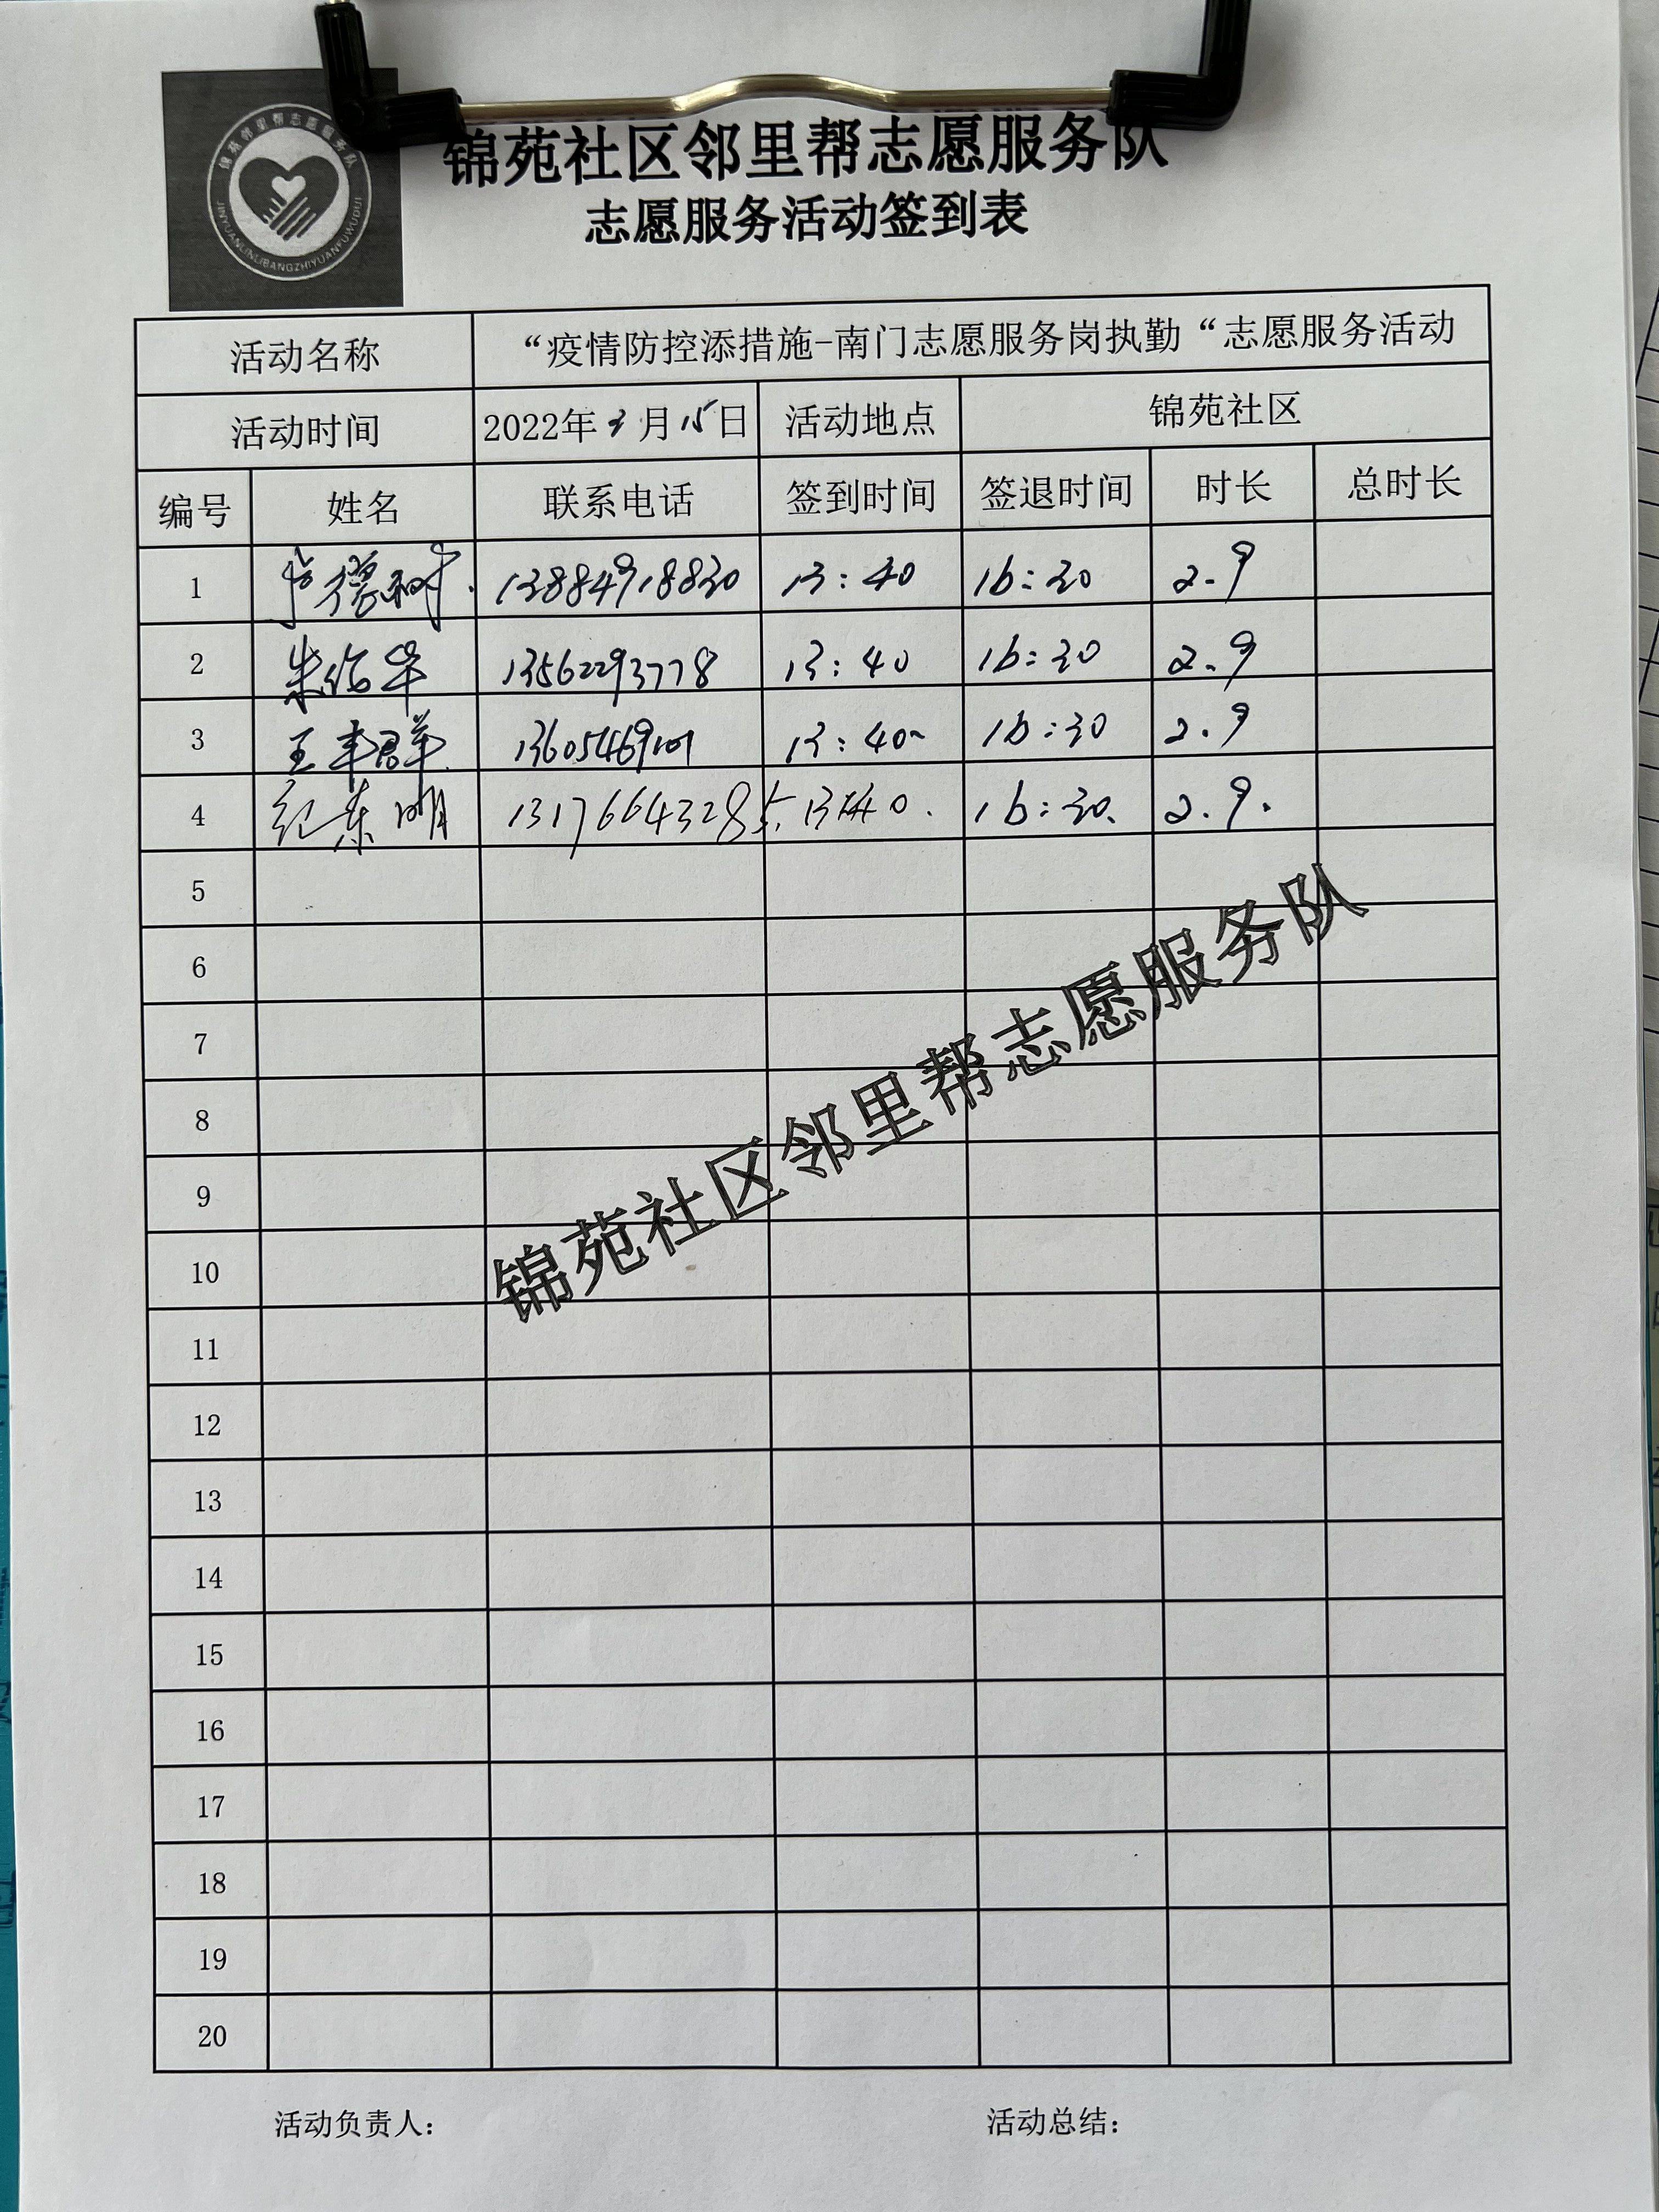 锦苑邻里帮志愿服务队
JINYUANLINLIBANGZHIYUANFUWUDUI
锦苑社区邻里帮志愿服务队
志愿服务活动签到表
活动名称 “疫情防控添措施-南门志愿服务岗执勤“志愿服务活动
活动时间 2022年3月15日 活动地点 锦苑社区
编号 姓名 联系电话 签到时间 签退时间 时长 总时长
1 卢德树 13884918830 13:40 16:30 2.9
2 朱绍华 13562293778 13:40 16:30 2.9
3 王丰群 13605469101 13:40 16:30 2.9
4 纪东明 13176643285 13:40 16:30 2.9
5
6
7
8
9
10
11
12
13
14
15
16
17
18
19
20
锦苑社区邻里帮志愿服务队
活动负责人: 活动总结: